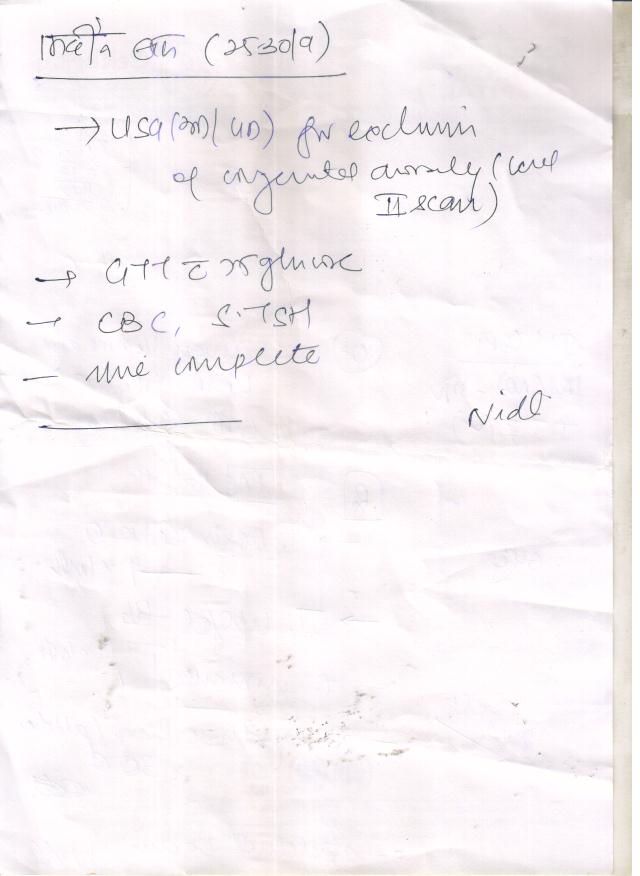 (2530/9)
→ USG (3D/4D) for exclusion
of congenital anomaly (level
II scan)
→ GTT c̄ 75g glucose
→ CBC, S.TSH
— Urine complete
Nidhi